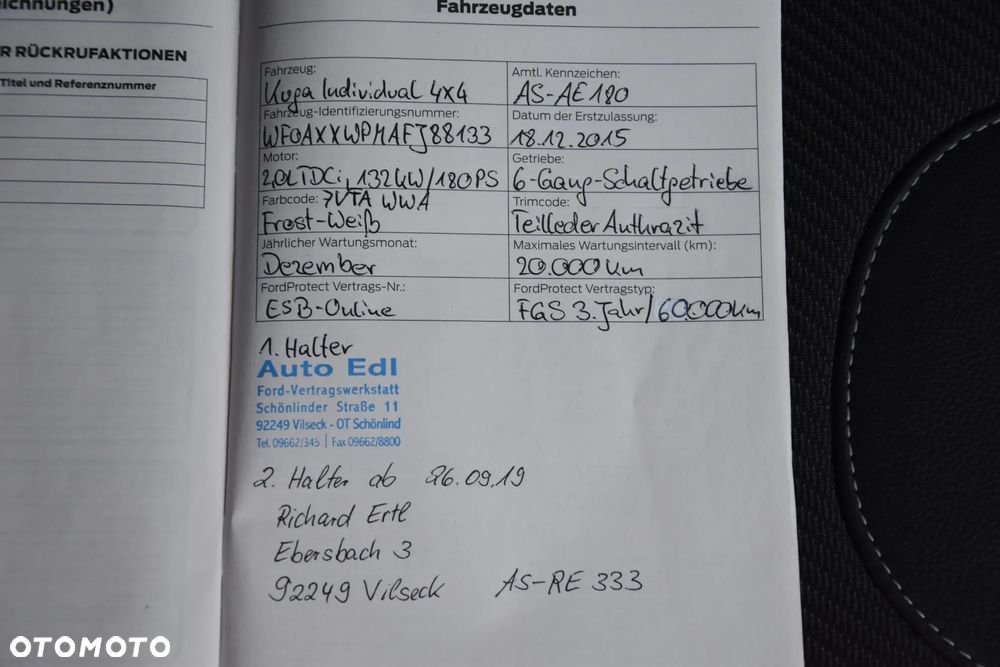 ichnungen)
R RÜCKRUFAKTIONEN
Titel und Referenznummer
Fahrzeugdaten
Fahrzeug:
Kuga Individual 4x4
Amtl. Kennzeichen:
AS-AE180
Fahrzeug-Identifizierungsnummer:
WF0AXXWPMAFJ88133
Datum der Erstzulassung:
18.12.2015
Motor:
2,0L TDCi, 132kW/180PS
Getriebe:
6-Gang-Schaltgetriebe
Farbcode: 7VTA WWA
Frost-Weiß
Trimcode:
Teilleder Anthrazit
Jährlicher Wartungsmonat:
Dezember
Maximales Wartungsintervall (km):
20.000 km
FordProtect Vertrags-Nr.:
ESB-Online
FordProtect Vertragstyp:
FGS 3. Jahr/60.000km
1. Halter
Auto Edl
Ford-Vertragswerkstatt
Schönlinder Straße 11
92249 Vilseck - OT Schönlind
Tel. 09662/345 | Fax 09662/8800
2. Halter ab 26.09.19
Richard Ertl
Ebersbach 3
92249 Vilseck AS-RE 333
OTOMOTO